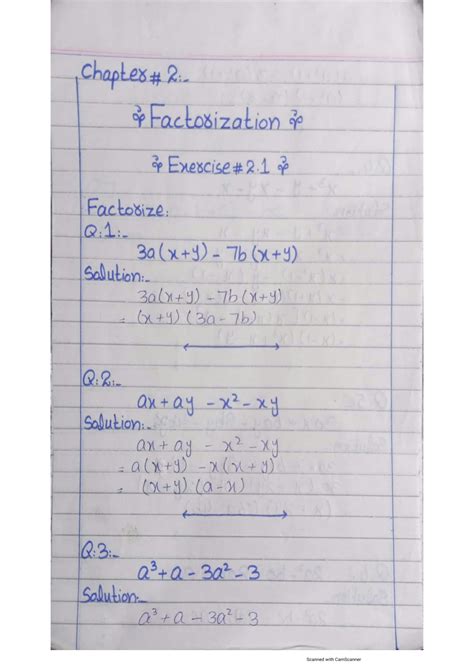 Chapter # 2:-
Factorization
Exercise # 2.1
Factorize:
Q:1:-
3a(x+y) - 7b(x+y)
Solution:-
3a(x+y) - 7b(x+y)
= (x+y) (3a - 7b)
Q:2:-
ax + ay - x² - xy
Solution:-
ax + ay - x² - xy
= a(x+y) - x(x+y)
= (x+y) (a-x)
Q:3:-
a³ + a - 3a² - 3
Solution:-
a³ + a - 3a² - 3
Scanned with CamScanner